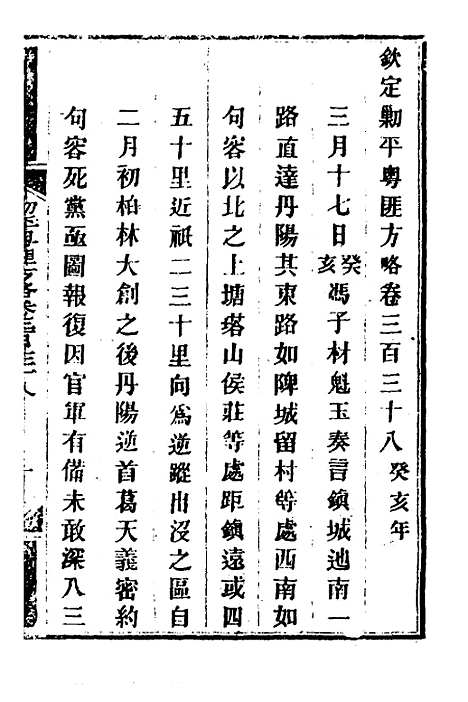 欽定剿平粵匪方略卷三百三十八 癸亥年
三月十七日癸亥馮子材魁玉奏言鎮城迤南一
路直達丹陽其東路如陴城留村等處西南如
句容以北之上塘塔山侯莊等處距鎮遠或四
五十里近祇二三十里向為逆蹤出沒之區自
二月初柏林大創之後丹陽逆首葛天義密約
句容死黨亟圖報復因官軍有備未敢深入三